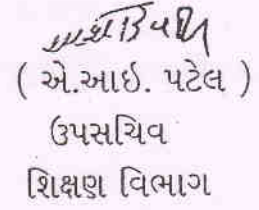 ( એ.આઇ. પટેલ )
ઉપસચિવ
શિક્ષણ વિભાગ